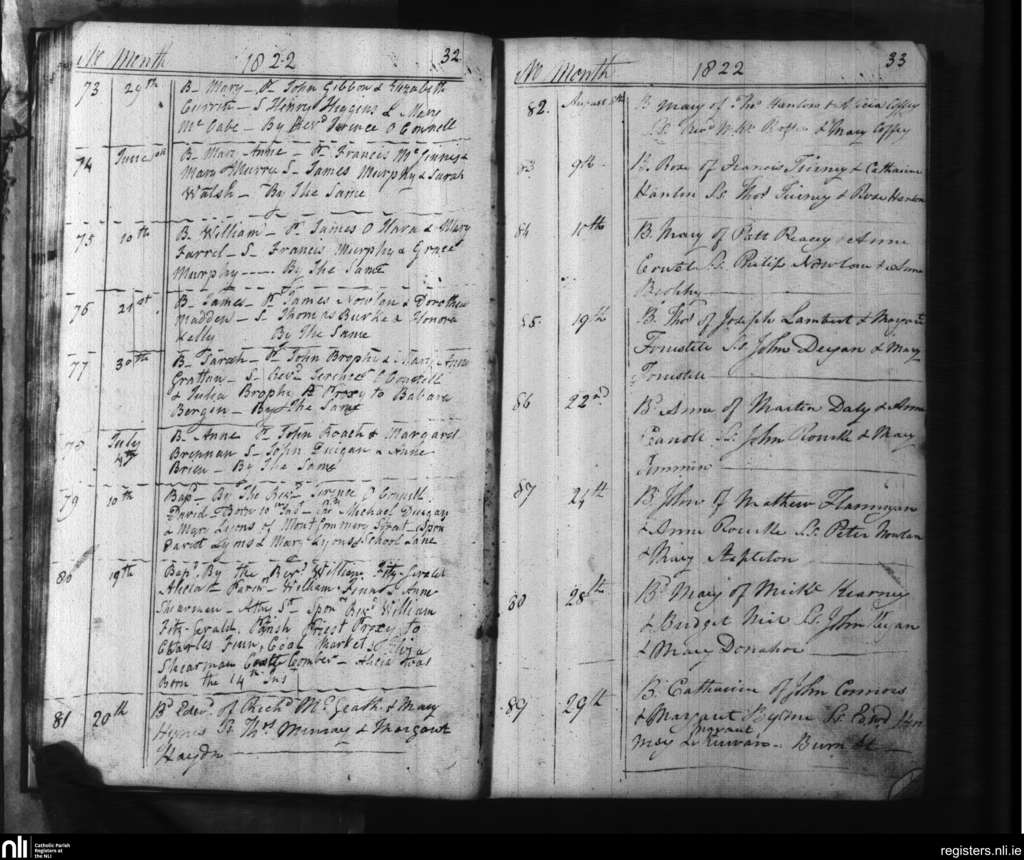 No Month 1822 32
73 29th B— Mary — P— John Gibbon & Elizabeth
Curren — S Henry Higgens & Mary
Mc Cabe — By Revd Terence O Connell
74 June B— Mary Anne — P— Francis Mc Ginnes &
Mary Murry S— James Murphy & Sarah
Walsh — By The Same
75 10th B— William — P— James O Hara & Mary
Farrel — S— Francis Murphy & Grace
Murphy —— By The Same
76 21st B— James — P— James Nowlan & Dorothea
Madden — S— Thomas Burke & Honora
Kelly By The Same
77 30th B— Sarah — P— John Brophy & Mary Anne
Grattan — S— Revd Terence O Connell
& Julia Brophy Proxy to Barbara
Bergin — By The Same
78 July B— Anne P— John Roach & Margaret
Brennan S— John Duigan & Anne
Brien — By The Same
79 10th Bapd— By The Revd Terence O Connell
David Born 10th Ins— Michael Duigan
& Mary Lyons of Montgommery Street — Spon
David Lyons & Mary Lyons School Lane
80 19th Bapd By the Revd William Fitz-Gerald
Alicia Parin— William Finn & Anne
Shearman — Spon Revd William
Fitz-Gerald, Parish Priest Proxy to
Charles Finn, Coal Market,
Shearman Castle Comber — Alicia was
Born the 14th Ins
81 20th Bd Edwd of Richd McGeath & Mary
Hynes Ss Thos Murray & Margaret
Haydn
No Month 1822 33
82. August B. Mary of Thos Hanlon & Alicia Coffey
Ss Revd & Mary Coffey
83 9th B. Rose of Francis Tierney & Catharine
Hanlon Ss Thos Tierney & Rose Hanlon
84 10th B. Mary of Patt Reavy & Anne
Ss Philip Nowlan & Anne
Brophy
85. 19th B. Thos of Joseph Lambert & Margaret
Forristell Ss John Deegan & Mary
Forristell
86 22nd Bd Anne of Martin Daly & Anne
Ss John Rourke & Mary
Timmin
87 24th B John of Mathew Flannigan
& Anne Rourke Ss Peter Nowlan
& Mary Stapleton
28th Bd Mary of Michl Kearney
& Bridget Ss John Ryan
& Mary Donahoe
89 29th B. Catharine of John Connors
& Margaret Byrne Ss Edwd
Margaret
Burn St
nli
Catholic Parish
Registers at
the NLI
registers.nli.ie